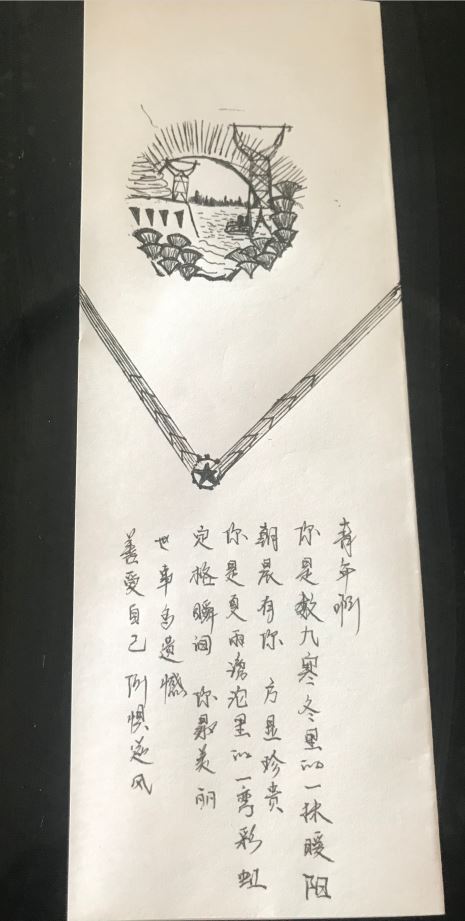 青年啊
你是数九寒冬里的一抹暖阳
朝晨有你 方显珍贵
你是夏雨滂沱里的一弯彩虹
定格瞬间 你最美丽
世事多遗憾
善爱自己 何惧逆风